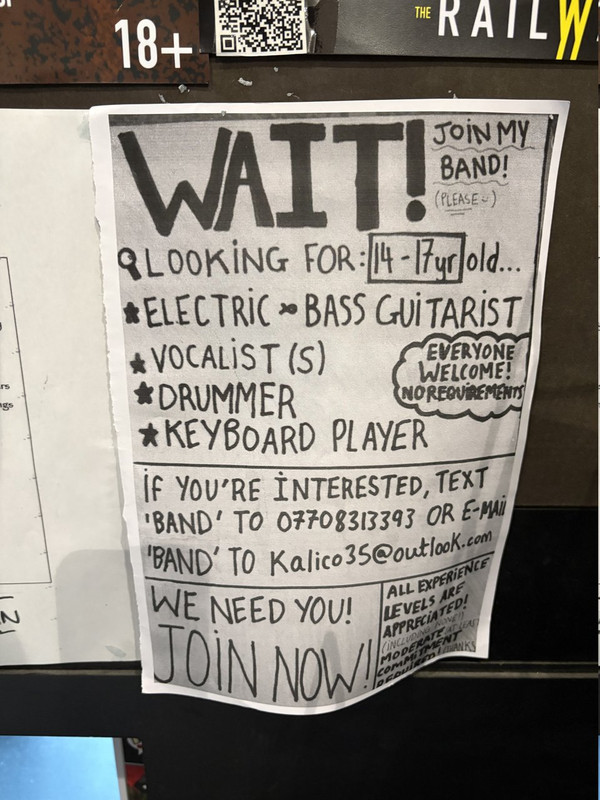 18+
THE RAILW
WAIT!
JOIN MY
BAND!
(PLEASE☺)
LOOKING FOR: 14-17yr old...
★ELECTRIC BASS GUITARIST
★VOCALIST(S)
★DRUMMER
★KEYBOARD PLAYER
EVERYONE
WELCOME!
NO REQUIREMENTS
IF YOU'RE INTERESTED, TEXT
'BAND' TO 07708313393 OR E-MAIL
'BAND' TO Kalico35@outlook.com
WE NEED YOU!
JOIN NOW!
ALL EXPERIENCE
LEVELS ARE
APPRECIATED!
(INCLUDING NONE!)
MODERATE AT LEAST
COMMITMENT
REQUIRED! THANKS